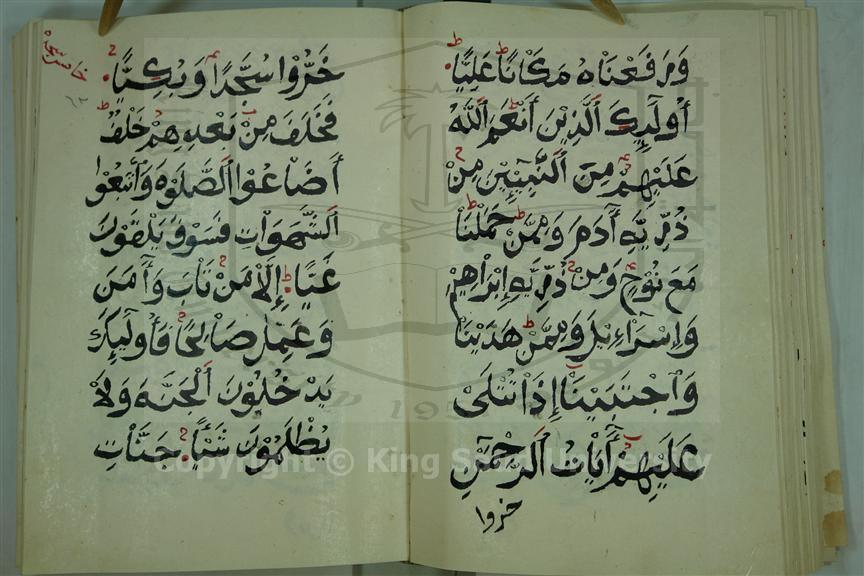 وَرَفَعْنَاهُ مَكَانًا عَلِيًّا
أُولَٰٓئِكَ ٱلَّذِينَ أَنْعَمَ ٱللَّهُ
عَلَيْهِمْ مِنَ ٱلنَّبِيِّينَ مِنْ
ذُرِّيَّةِ آدَمَ وَمِمَّنْ حَمَلْنَا
مَعَ نُوحٍ وَمِنْ ذُرِّيَّةِ إِبْرَاهِيمَ
وَإِسْرَآءِيلَ وَمِمَّنْ هَدَيْنَا
وَٱجْتَبَيْنَا إِذَا تُتْلَىٰ
عَلَيْهِمْ آيَاتُ ٱلرَّحْمَٰنِ
خروا
خَرُّوا سُجَّدًا وَبُكِيًّا
فَخَلَفَ مِنْ بَعْدِهِمْ خَلْفٌ
أَضَاعُوا ٱلصَّلَوٰةَ وَٱتَّبَعُوا
ٱلشَّهَوَاتِ فَسَوْفَ يَلْقَوْنَ
غَيًّا إِلَّا مَنْ تَابَ وَآمَنَ
وَعَمِلَ صَالِحًا فَأُولَٰٓئِكَ
يَدْخُلُونَ ٱلْجَنَّةَ وَلَا
يُظْلَمُونَ شَيْئًا جَنَّاتِ
Copyright © King Saud University